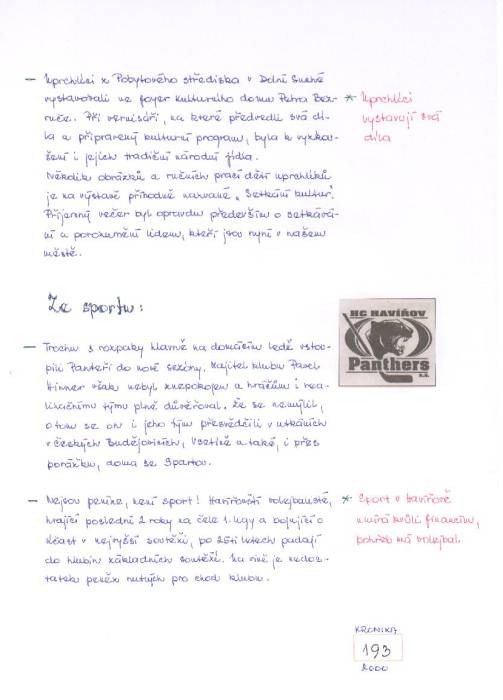 – Uprchlíci z Pobytového střediska v Dolní Suché
vystavovali ve foyer kulturního domu Petra Bez-
ruče. Při vernisáži, na které předvedli svá dí-
la a připravený kulturní program, byla k vyzkou-
šení i jejich tradiční národní jídla.
Několik obrázků a ručních prací dětí uprchlíků
je na výstavě příhodně nazvané „Setkání kultur".
Příjemný večer byl opravdu především o setkává-
ní a porozumění lidem, kteří jsou nyní v našem
městě.
* Uprchlíci
vystavují svá
díla
Ze sportu:
HC HAVÍŘOV
Panthers
– Trochu s rozpaky hlavně na domácím ledě vstou-
pili Panteři do nové sezóny. Majitel klubu Pavel
Hinner však nebyl znepokojen a hráčům i rea-
lizačnímu týmu plně důvěřoval. Že se nemýlil,
o tom se on i jeho tým přesvědčili v utkáních
v Českých Budějovicích, Vsetíně a také, i přes
porážku, doma se Spartou.
– Nejsou peníze, není sport! Havířovští volejbalisté,
hrající poslední 2 roky na čele 1. ligy a bojující o
účast v nejvyšší soutěži, po 25ti letech padají
do hlubin základních soutěží. Na vině je nedos-
tatek peněz nutných pro chod klubu.
* Sport v Havířově
umírá kvůli financím,
pohřeb má volejbal
KRONIKA
193
2000